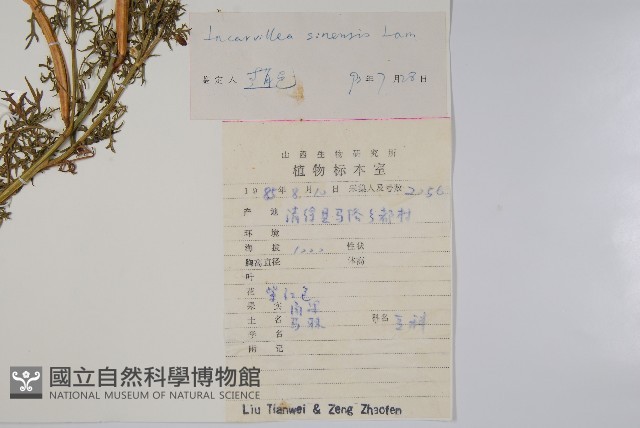 Incarvillea sinensis Lam.
鉴定人 95年7月28日
山西生物研究所
植物标本室
1985年8月10日 采集人及号数 2056
产地 清徐县马峪乡都村
环境
海拔 1000 性状
胸高直径 体高
叶
花 紫红色
果实
土名 科名
学名
附记
Liu Tianwei & Zeng Zhaofen
國立自然科學博物館
NATIONAL MUSEUM OF NATURAL SCIENCE